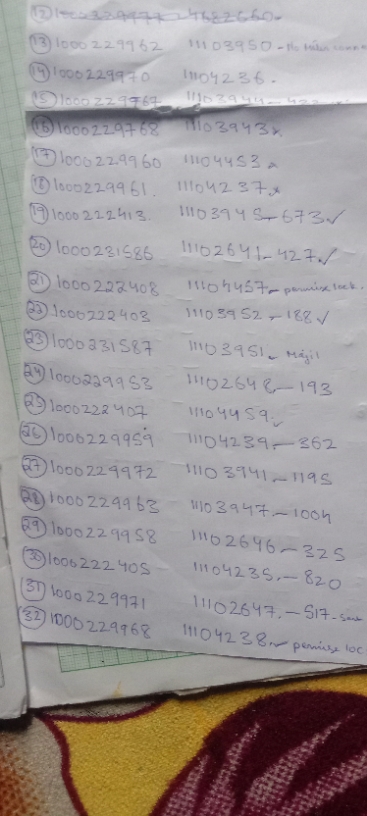 (13) 1000229962 11103950 - No
(14) 1000229970 11104236.
(15) 1000229767
(16) 1000229768 11103943 x
(17) 1000229960 11104453 x
(18) 1000229961. 11104237 x
(19) 1000222413. 11103945 - 673 ✓
(20) 1000231586 11102641 - 427 ✓
(21) 1000222408 11104457 - permise lock.
(22) 1000222403 11103952 - 188 ✓
(23) 1000231587 11103951 -
(24) 1000229953 11102648 - 193
(25) 1000222407 11104459 ✓
(26) 1000229959 11104239 - 362
(27) 1000229972 11103941 - 1195
(28) 1000229963 11103947 - 1004
(29) 1000229958 11102646 - 325
(30) 1000222405 11104235 - 820
(31) 1000229971 11102647 - 517 -
(32) 1000229968 11104238 - permise loc